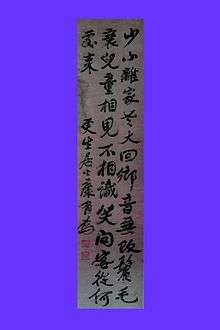 少小離家老大回鄉音無改鬢毛
衰兒童相見不相識笑問客從何
處來
更生居士康有為